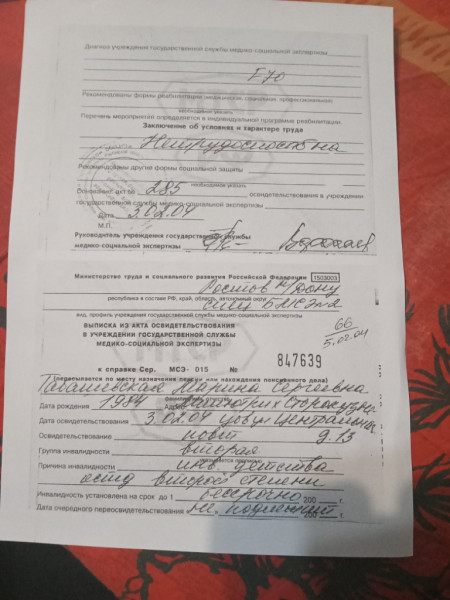 Диагноз учреждения государственной службы медико-социальной экспертизы
F 70
Рекомендованы формы реабилитации (медицинская, социальная, профессиональная)
необходимое указать
Перечень мероприятий определяется в индивидуальной программе реабилитации
Заключение об условиях и характере труда
Нетрудоспособна
Рекомендованы другие формы социальной защиты
необходимое указать
Основание: акт № 285 освидетельствования в учреждении
государственной службы медико-социальной экспертизы
Дата 3.02.04
М.П.
Руководитель учреждения государственной службы
медико-социальной экспертизы
Министерство труда и социального развития Российской Федерации 1503003
Ростов н/Дону
республика в составе РФ, край, область, автономный округ
вид, профиль учреждения государственной службы медико-социальной экспертизы
ВЫПИСКА ИЗ АКТА ОСВИДЕТЕЛЬСТВОВАНИЯ
В УЧРЕЖДЕНИИ ГОСУДАРСТВЕННОЙ СЛУЖБЫ
МЕДИКО-СОЦИАЛЬНОЙ ЭКСПЕРТИЗЫ
66
5.02.04
к справке Сер. МСЭ- 015 № 847639
(пересылается по месту назначения пенсии или нахождения пенсионного дела)
Марина Сергеевна
Дата рождения 1984
Дата освидетельствования 3.02.04 Центральная
Освидетельствование повт д.13
Группа инвалидности вторая
Причина инвалидности инв. детства
второй степени
Инвалидность установлена на срок до 1 бессрочно 200 г.
Дата очередного переосвидетельствования не 200 г.